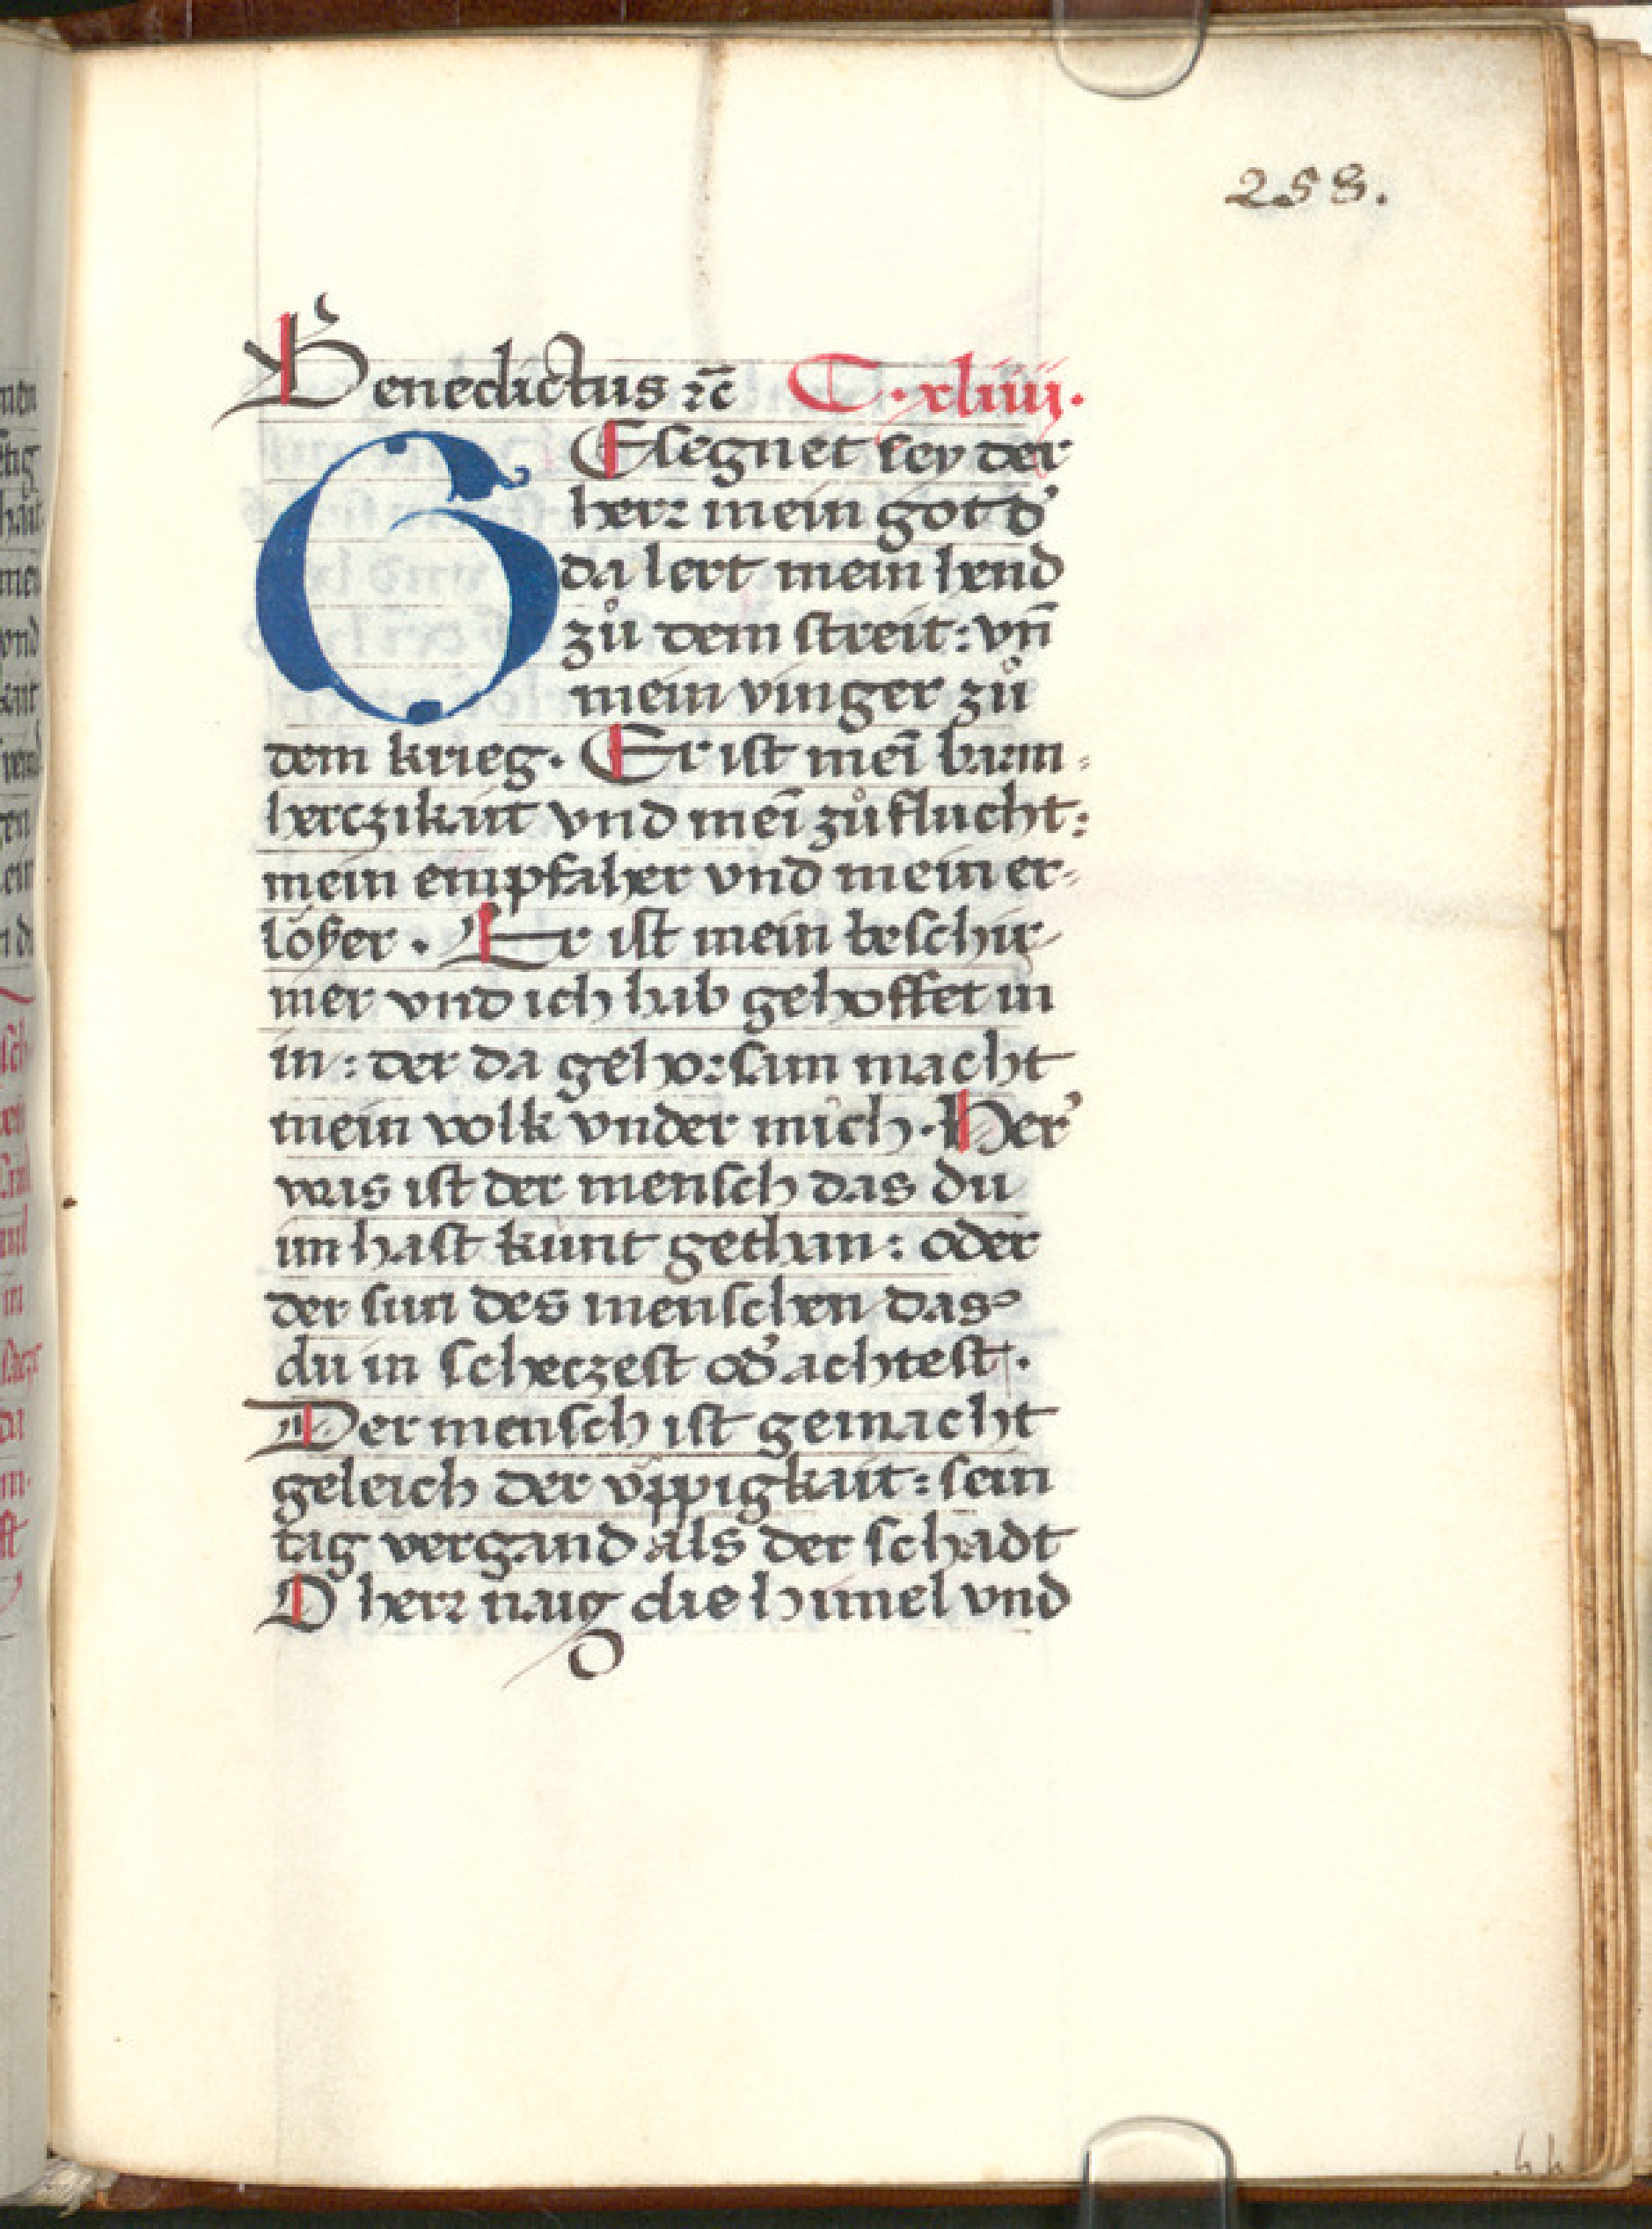 258.
Benedictus ꝛc̄ C·xliiii·
GEsegnet sey der
herꝛ mein got d'
da lert mein hend
zů dem streit: vn̄
mein vinger zů
dem krieg. Er ist mei̅ barm-
herczikait vnd mei̅ zůflucht:
mein empfaher vnd mein er-
lóser. Er ist mein beschir-
mer vnd ich hab gehoffet in
in: der da gehoꝛsam macht
mein volk vnder mich. Her'
was ist der mensch das du
im hast kunt gethan: oder
der sun des menschen das
du in scheczest od' achtest.
Der mensch ist gemacht
geleich der v̈ppigkait: sein
tag vergand als der schadt
O herꝛ naig die himel vnd